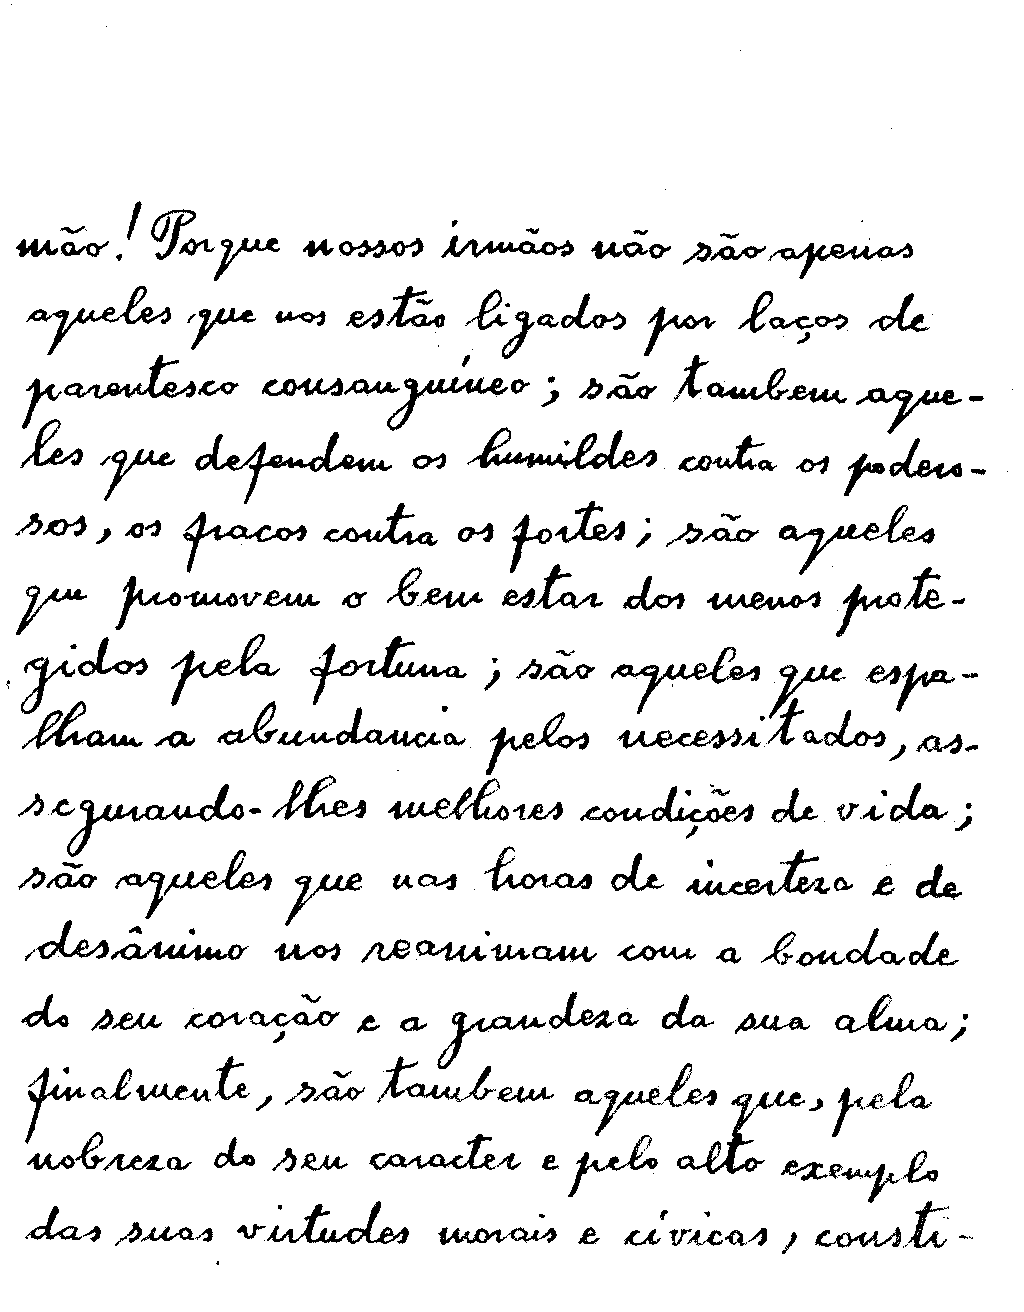 mão! Porque nossos irmãos não são apenas
aqueles que nos estão ligados por laços de
parentesco consanguíneo; são tambem aque-
les que defendem os humildes contra os podero-
sos, os fracos contra os fortes; são aqueles
que promovem o bem estar dos menos prote-
gidos pela fortuna; são aqueles que espa-
lham a abundancia pelos necessitados, as-
segurando-lhes melhores condições de vida;
são aqueles que nas horas de incerteza e de
desânimo nos reanimam com a bondade
do seu coração e a grandeza da sua alma;
finalmente, são tambem aqueles que, pela
nobreza do seu caracter e pelo alto exemplo
das suas virtudes morais e cívicas, consti-